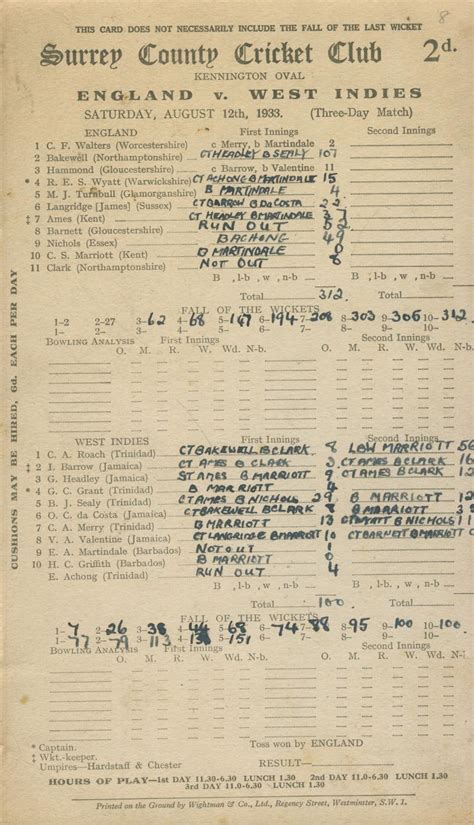 8
THIS CARD DOES NOT NECESSARILY INCLUDE THE FALL OF THE LAST WICKET
Surrey County Cricket Club 2d.
KENNINGTON OVAL
ENGLAND v. WEST INDIES
SATURDAY, AUGUST 12th, 1933. (Three-Day Match)
ENGLAND First Innings Second Innings
1 C. F. Walters (Worcestershire) c Merry, b Martindale 2
2 Bakewell (Northamptonshire) CT HEADLEY B SEALY 107
3 Hammond (Gloucestershire) c Barrow, b Valentine 11
* 4 R. E. S. Wyatt (Warwickshire) CT ACHONG B MARTINDALE 15
5 M. J. Turnbull (Glamorganshire) B MARTINDALE 4
6 Langridge [James] (Sussex) CT BARROW B DaCOSTA 22
‡ 7 Ames (Kent) CT HEADLEY B MARTINDALE 37
8 Barnett (Gloucestershire) RUN OUT 52
9 Nichols (Essex) B ACHONG 49
10 C. S. Marriott (Kent) B MARTINDALE 0
11 Clark (Northamptonshire) NOT OUT 8
B , l-b , w , n-b B , l-b , w , n-b
Total 312. Total
FALL OF THE WICKETS
1-2 2-27 3-62 4-68 5-147 6-194 7-208 8-303 9-306 10-312 1- 2- 3- 4- 5- 6- 7- 8- 9- 10-
BOWLING ANALYSIS First Innings Second Innings
O. M. R. W. Wd. N-b. O. M. R. W. Wd. N-b.
CUSHIONS MAY BE HIRED, 6d. EACH PER DAY
WEST INDIES First Innings Second Innings
1 C. A. Roach (Trinidad) CT BAKEWELL B CLARK 8 LBW MARRIOTT 56
‡ 2 I. Barrow (Jamaica) CT AMES B CLARK 3 CT AMES B CLARK 16
3 G. Headley (Jamaica) ST AMES B MARRIOTT 9 CT AMES B CLARK 12
* 4 G. C. Grant (Trinidad) B MARRIOTT 4
5 B. J. Sealy (Trinidad) CT AMES B NICHOLS 29 B MARRIOTT 12
6 O. C. da Costa (Jamaica) CT BAKEWELL B CLARK 8 B MARRIOTT 35
7 C. A. Merry (Trinidad) B MARRIOTT 13 CT WYATT B NICHOLS 11
8 V. A. Valentine (Jamaica) CT LANGRIDGE B MARRIOTT 10 CT BARNETT B MARRIOTT 0
9 E. A. Martindale (Barbados) NOT OUT 1
10 H. C. Griffith (Barbados) B MARRIOTT 0
E. Achong (Trinidad) RUN OUT 4
B , l-b , w , n-b B , l-b , w , n-b
Total 100. Total
FALL OF THE WICKETS
1-7 2-26 3-38 4-44 5-68 6-74 7-88 8-95 9-100 10-100
1-77 2-79 3-113 4-138 5-151
BOWLING ANALYSIS First Innings Second Innings
O. M. R. W. Wd. N-b. O. M. R. W. Wd. N-b.
* Captain. Toss won by ENGLAND
‡ Wkt.-keeper.
Umpires—Hardstaff & Chester RESULT—
HOURS OF PLAY—1st DAY 11.30-6.30 LUNCH 1.30 2nd DAY 11.0-6.30 LUNCH 1.30
3rd DAY 11.0-6.30 LUNCH 1.30
Printed on the Ground by Wightman & Co., Ltd., Regency Street, Westminster, S.W.1.